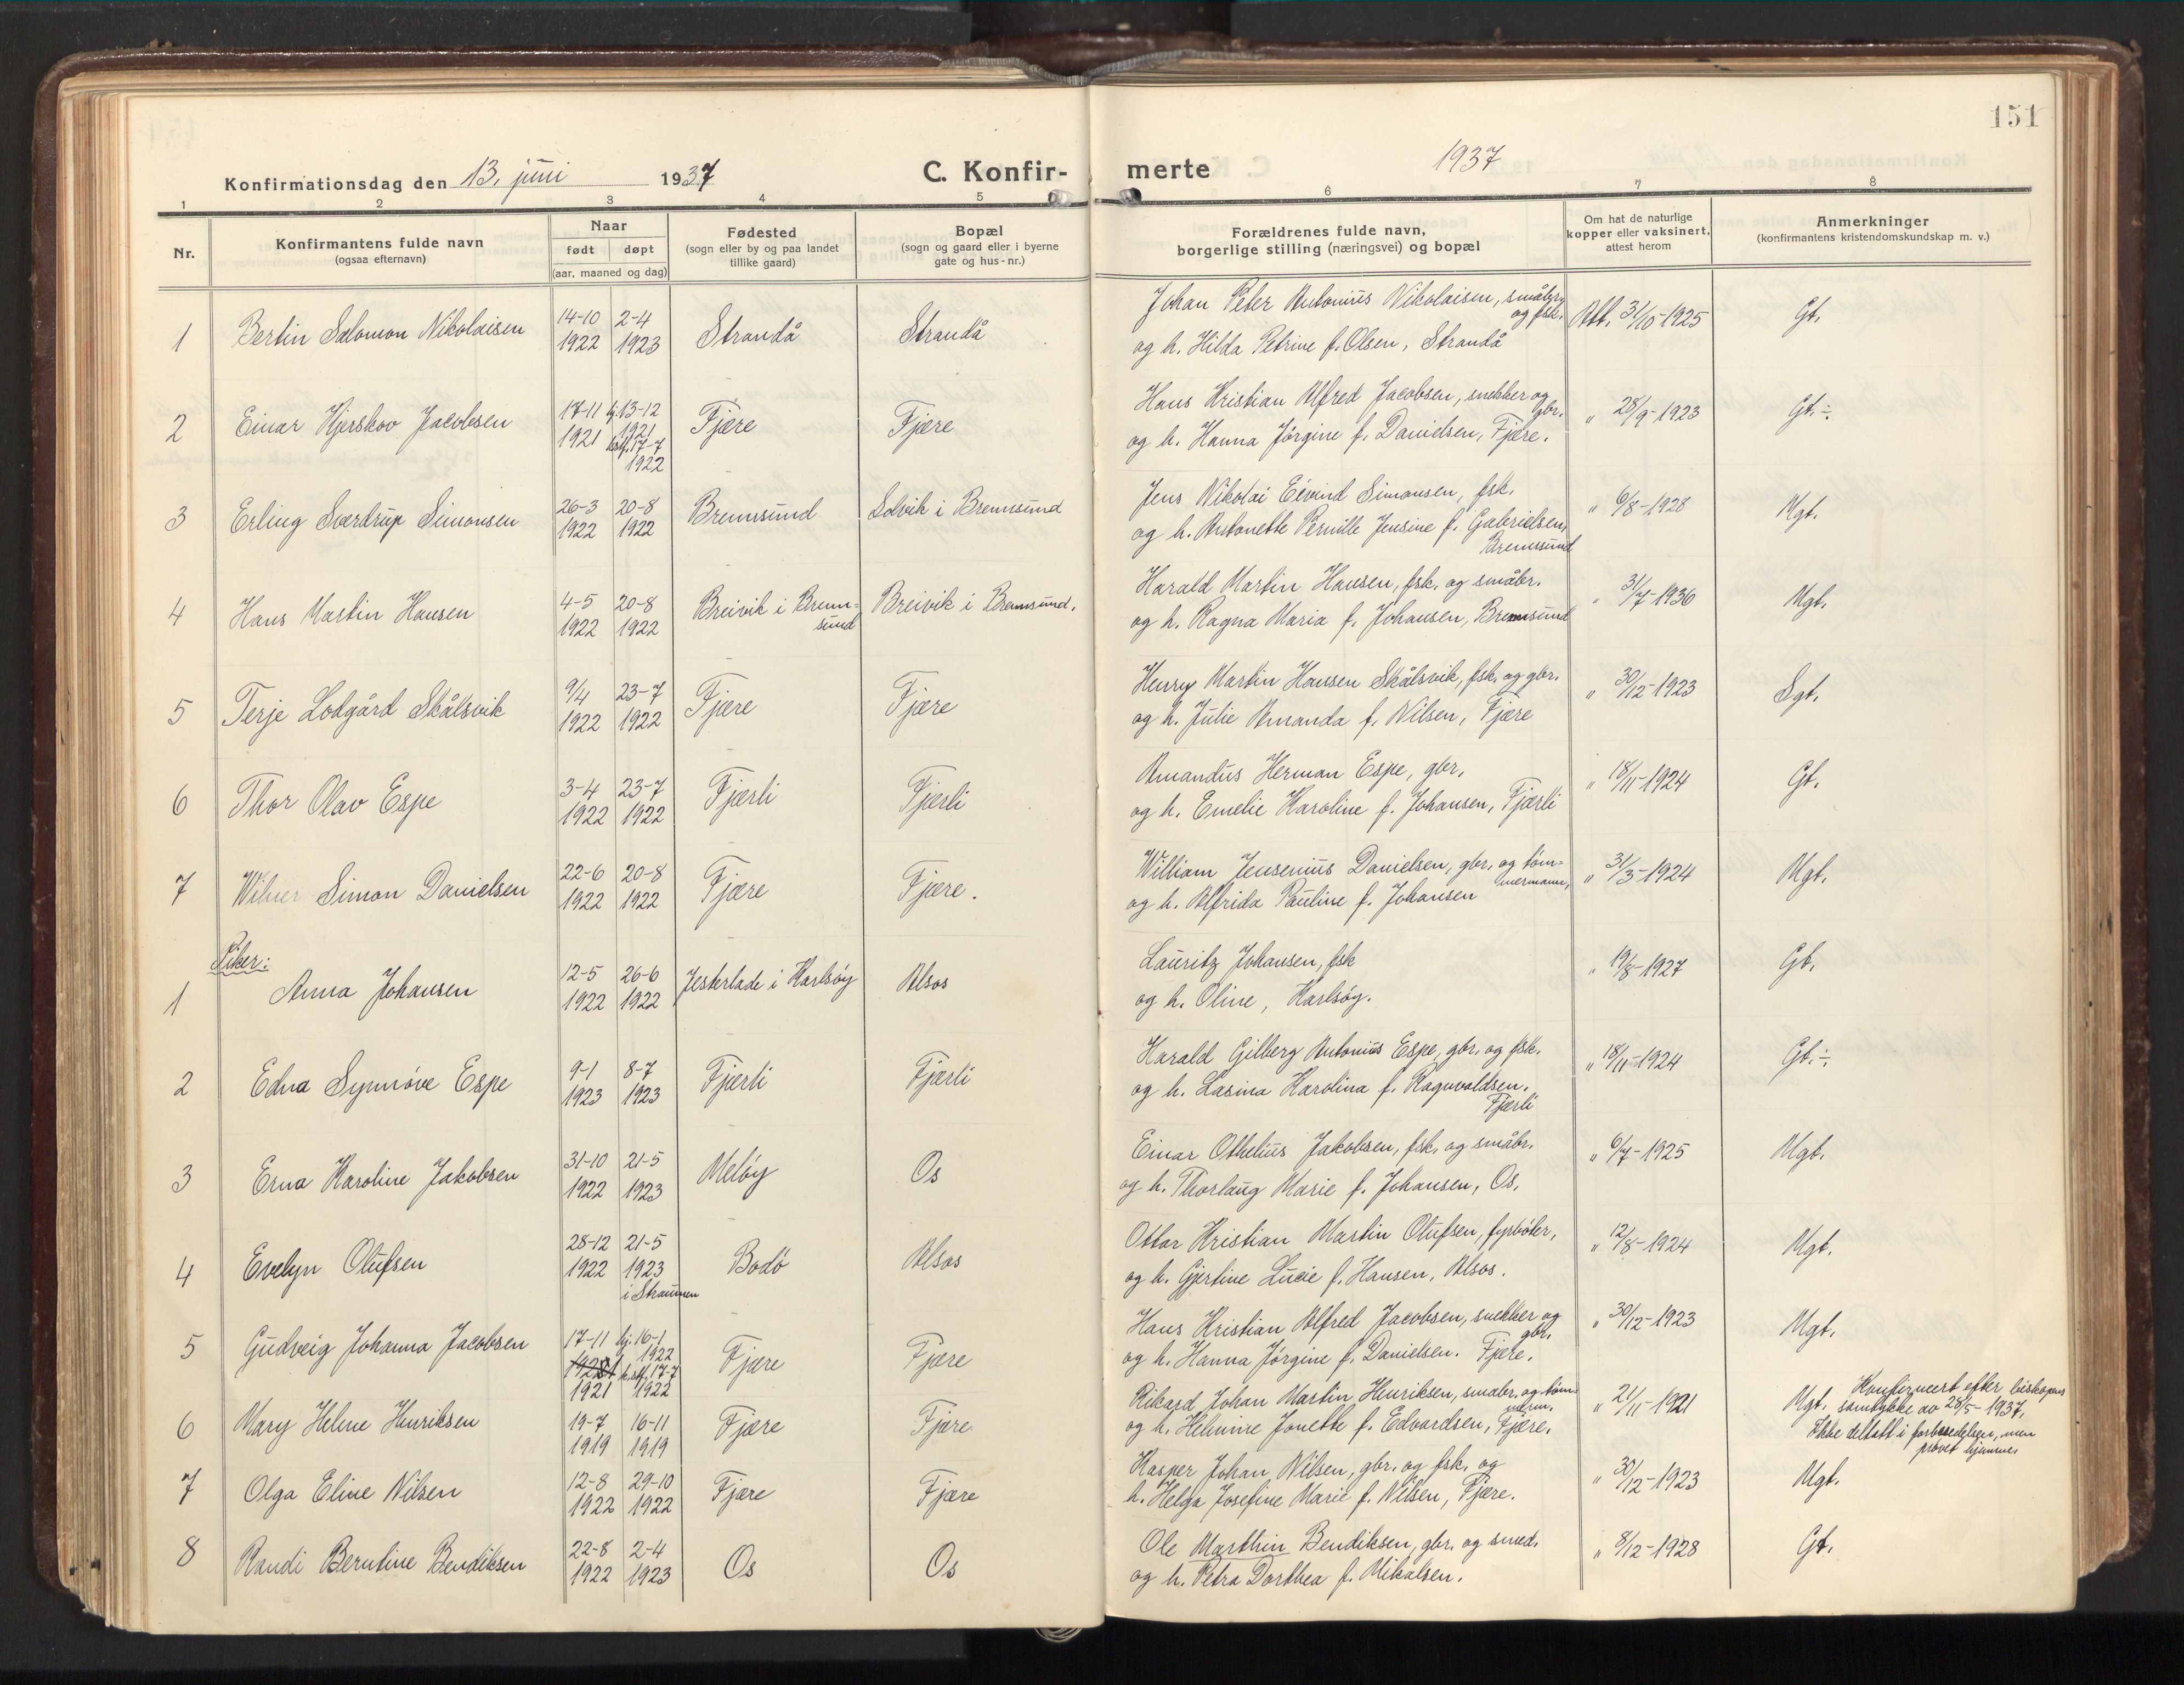 151
Konfirmationsdag den 13. juni 1937 C. Konfir- merte 1937
1 2 3 4 5 6 7 8
Nr.
Konfirmantens fulde navn
(ogsaa efternavn)
Naar
født døpt
(aar, maaned og dag)
Fødested
(sogn eller by og paa landet
tillike gaard)
Bopæl
(sogn og gaard eller i byerne
gate og hus-nr.)
Forældrenes fulde navn,
borgerlige stilling (næringsvei) og bopæl
Om hat de naturlige
kopper eller vaksinert,
attest herom
Anmerkninger
(konfirmantens kristendomskundskap m. v.)
1 Bertin Salomon Nikolaisen 14-10 2-4 Strandå Strandå
1922 1923
Johan Peter Antonius Nikolaisen, småbr.
og fsk.
og h. Hilda Petrine f. Olsen, Strandå
Att. 31/10-1925 Gt.
2 Einar Hjerskov Jacobsen 17-11 hj. 13-12 Fjære Fjære
1921 1921
17-7
1922
Hans Kristian Alfred Jacobsen, snekker og
gbr.
og h. Hanna Jørgine f. Danielsen, Fjære.
" 28/9-1923 Gt.÷
3 Erling Sverdrup Simonsen 26-3 20-8 Brennsund Solvik i Brennsund
1922 1922
Jens Nikolai Eivind Simonsen, fsk.
og h. Antonette Pernille Jensine f. Gabrielsen,
Brennsund
" 6/8-1928 Mgt.
4 Hans Martin Hansen 4-5 20-8 Breivik i Brenn- Breivik i Brennsund.
1922 1922 sund
Harald Martin Hansen, fsk. og småbr.
og h. Ragna Maria f. Johansen, Brennsund
" 31/7-1936 Mgt.
5 Terje Lodgård Skålsvik 9/4 23-7 Fjære Fjære
1922 1922
Henry Martin Hansen Skålsvik, fsk. og gbr.
og h. Julie Amanda f. Nilsen, Fjære
" 30/12-1923 Sgt.
6 Thor Olav Espe 3-4 23-7 Fjærli Fjærli
1922 1922
Amandus Herman Espe, gbr.
og h. Emelie Karoline f. Johansen, Fjærli
" 18/11-1924 Gt.
7 Wilner Simon Danielsen 22-6 20-8 Fjære Fjære.
1922 1922
William Jensenius Danielsen, gbr. og tøm-
mermann,
og h. Alfrida Pauline f. Johansen
" 31/3-1924 Mgt.
Piker:
1 Anna Johansen 12-5 26-6 Jesterlade i Karlsøy Alsos
1922 1922
Lauritz Johansen, fsk
og h. Oline, Karlsøy.
" 19/8-1927 Gt.
2 Edna Synnøve Espe 9-1 8-7 Fjærli Fjærli
1923 1923
Harald Gilberg Antonius Espe, gbr. og fsk.
og h. Lasina Karolina f. Ragnvaldsen.
Fjærli
" 18/11-1924 Gt.÷
3 Erna Karoline Jakobsen 31-10 21-5 Meløy Os
1922 1923
Einar Othelius Jakobsen, fsk. og småbr.
og h. Thorlaug Marie f. Johansen, Os.
" 6/7-1925 Mgt.
4 Evelyn Olufsen 28-12 21-5 Bodø Alsos
1922 1923
i Straumen
Ottar Kristian Martin Olufsen, fyrbøter,
og h. Gjertine Lucie f. Hansen, Alsos.
" 12/8-1924 Mgt.
5 Gudveig Johanna Jacobsen 17-11 hj. 16-1 Fjære Fjære
1922
17-7
1921 1922
Hans Kristian Alfred Jacobsen, snekker og
gbr.
og h. Hanna Jørgine f. Danielsen. Fjære.
" 30/12-1923 Mgt.
6 Mary Helene Henriksen 19-7 16-11 Fjære Fjære
1919 1919
Rikard Johan Martin Henriksen, småbr. og tøm-
merm.
og h. Helmine Jonette f. Edvardsen, Fjære.
" 21/11-1921 Mgt. Konfirmert efter biskopens
samtykke av 28/5-1937.
Ikke deltatt i forberedelsen, men
prøvet hjemme.
7 Olga Eline Nilsen 12-8 29-10 Fjære Fjære
1922 1922
Kasper Johan Nilsen, gbr. og fsk. og
h. Helga Josefine Marie f. Nilsen, Fjære.
" 30/12-1923 Mgt.
8 Randi Berntine Bendiksen 22-8 2-4 Os Os
1922 1923
Ole Marthin Bendiksen, gbr. og smed.
og h. Petra Dorthea f. Mikalsen.
" 8/12-1928 Gt.